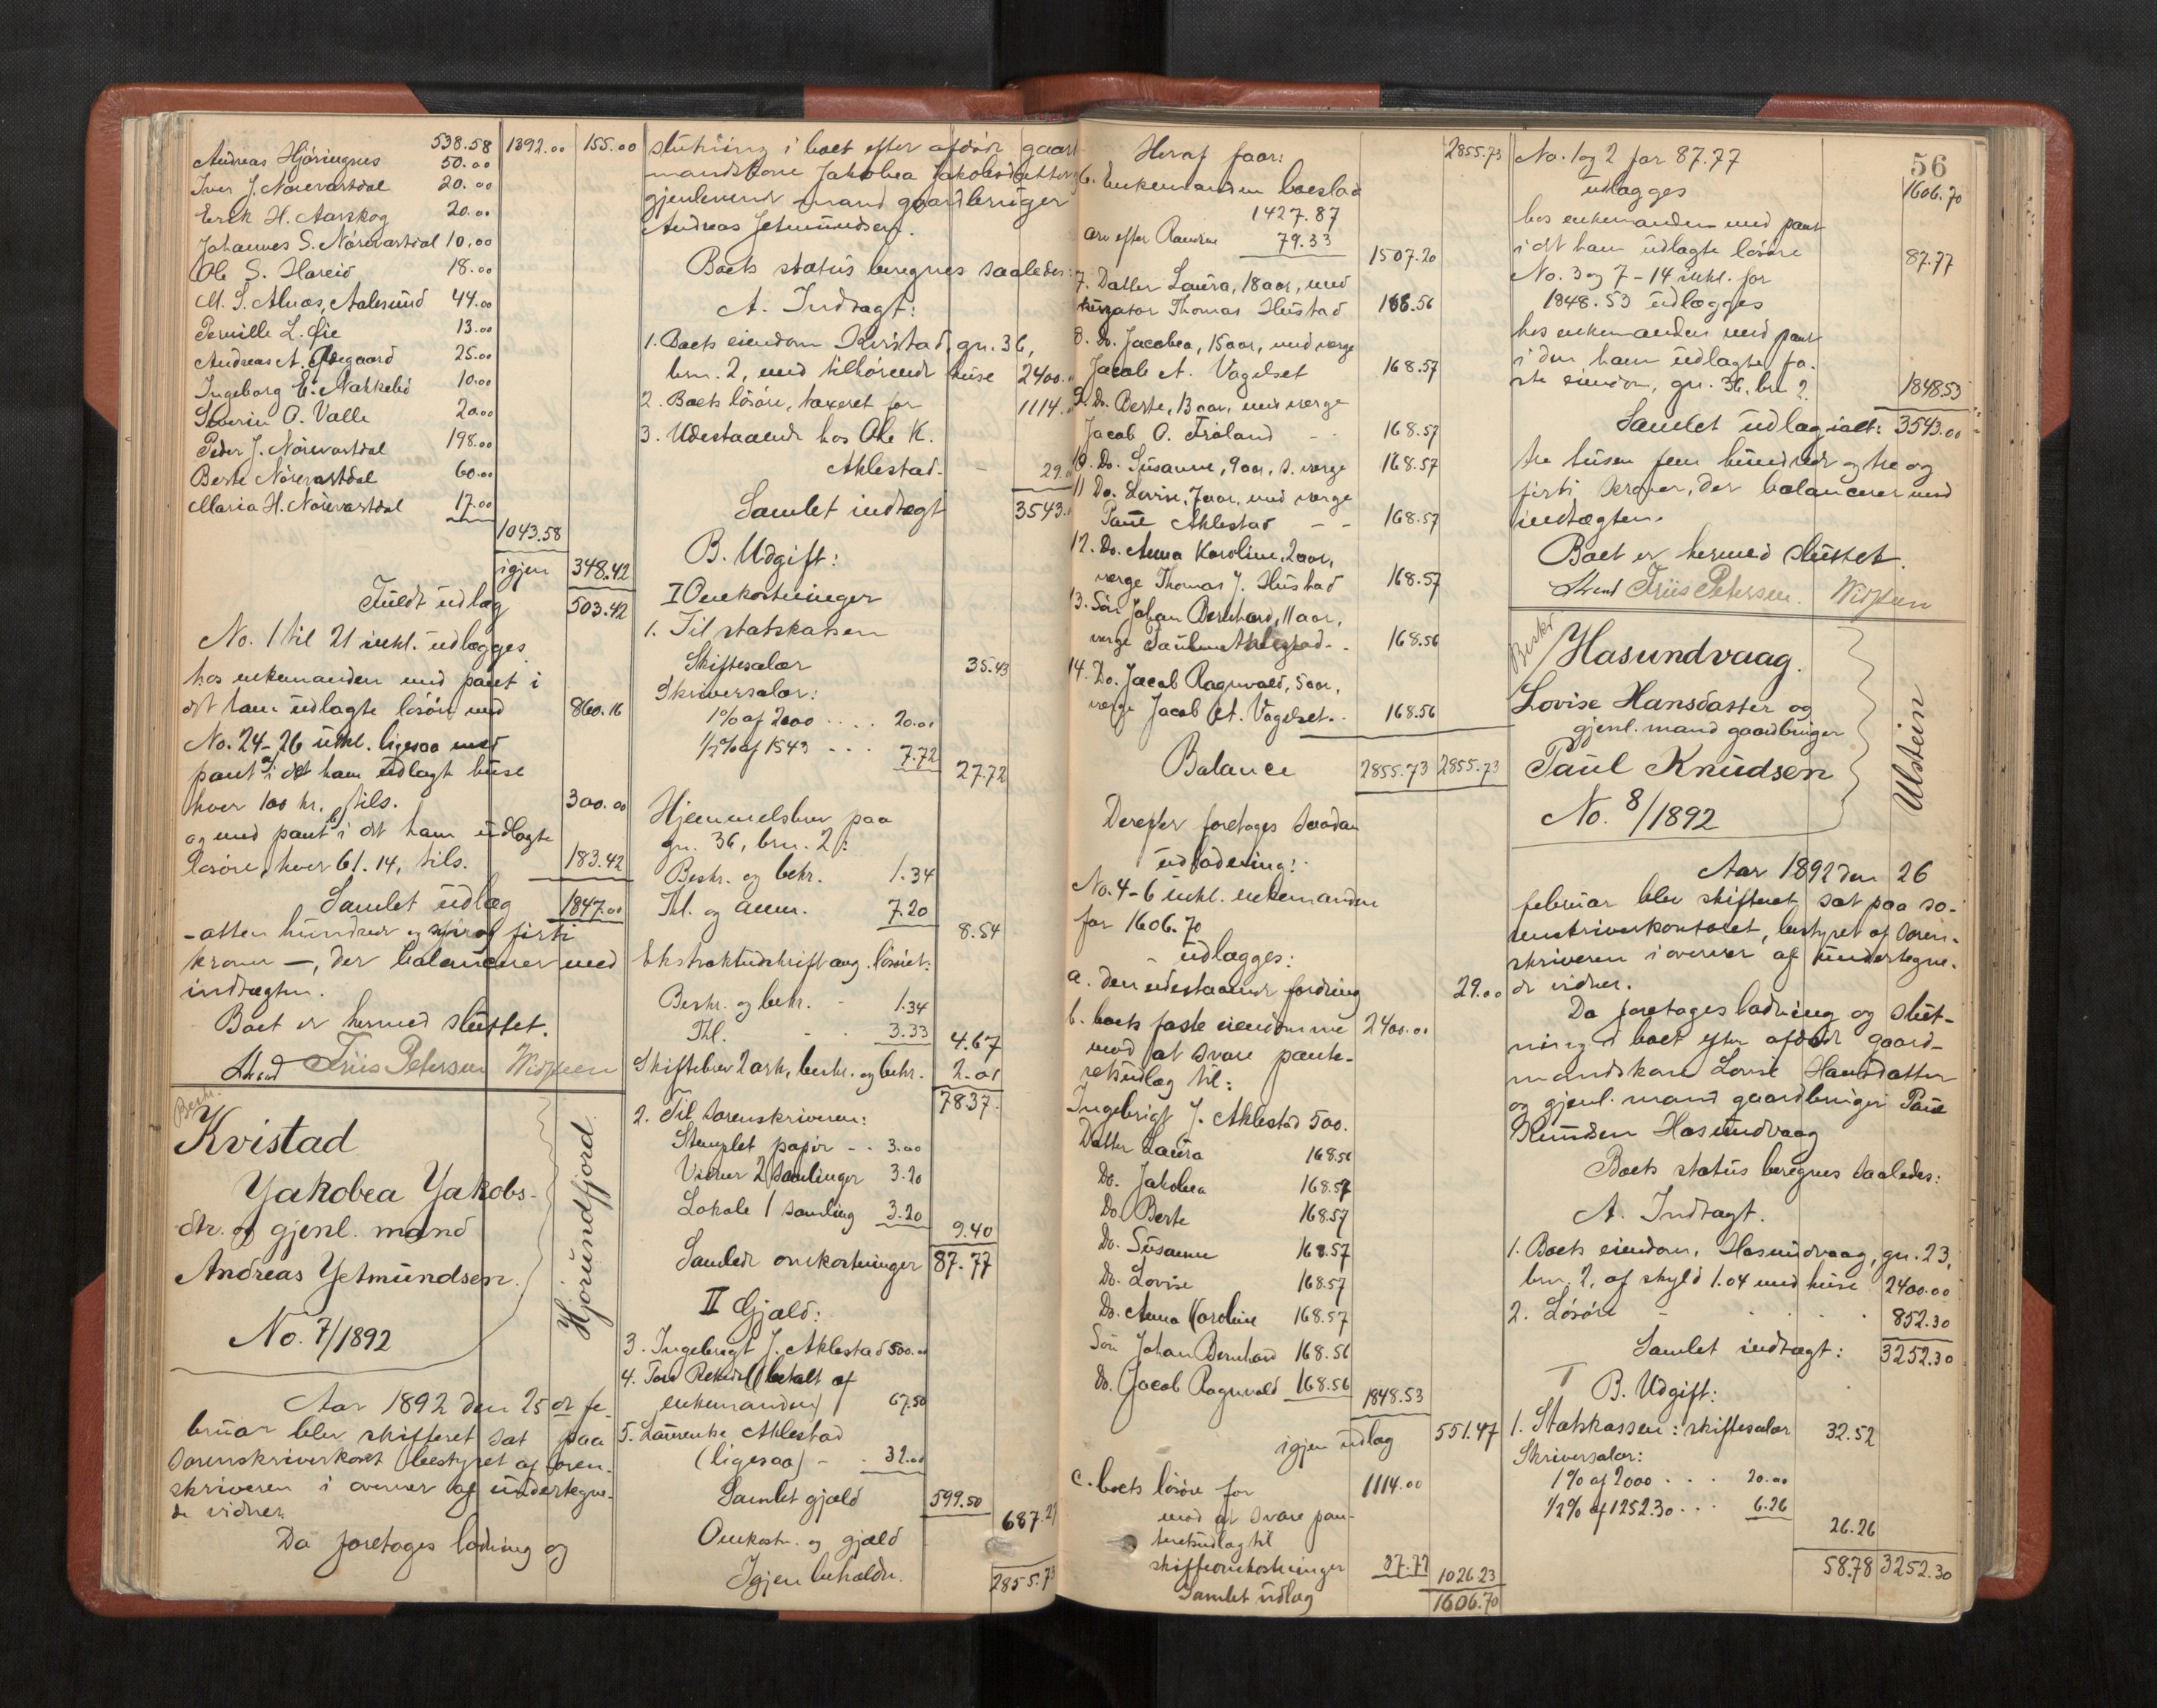 538.58 1392.00 155.00
Andreas Hjøringnes 50.00
Iver J. Nørevartdal 20.00
Erik H. Aarskog 20.00
Johannes S. Nørevartdal 10.00
Ole S. Hareid 18.00
M. S. Alnæs, Aalesund 44.00
Pernille L. Øie 13.00
Andreas A. Ødegaard 25.00
Ingeborg E. Nakkelid 10.00
Severin O. Valle 20.00
Peder J. Nørevartdal 198.00
Berte Nørevartdal 60.00
Maria H. Nørevartdal 17.00
1043.58
igjen 348.42
Fuldt udlæg 503.42
No. 1 til 21 inkl. udlægges
hos enkemanden med pant i
det ham udlagte løsøre med 860.16
No. 24-26 inkl. ligesaa med
pant i det ham udlagt huse
hver 100 kr., tils. 300.00
og med pant i det ham udlagte
løsøre, hver 61.14, tils. 183.42
Samlet udlæg 1847.00
- atten hundrede og syv og firti
kroner -, der balancerer med
indtægten.
Boet er hermed sluttet.
Friis Petersen
Beskr.
Kvistad
Yakobea Yakobs-
dtr. og gjenl. mand
Andreas Yetmundsen.
No. 7/1892
Hjørundfjord
Aar 1892 den 25 de fe-
bruar blev skifteret sat paa
sorenskriverkont. bestyret af soren-
skriveren i overvær af undertegne-
de vidner.
Da foretoges lodning og
slutning i boet efter afdøde gaard-
mandskone Jakobea Jakobsdatter og
gjenlevende mand gaardbruger
Andreas Jetmundsen.
Boets status beregnes saaledes:
A. Indtægt:
1. Boets eiendom Kvistad, gn. 36,
brn. 2, med tilhørende huse 2400.
2. Boets løsøre, taxeret for 1114.
3. Udestaaende hos Ole K.
Aklestad - 29.
Samlet indtægt 3543.
B. Udgift:
I Omkostninger
1. Til statskassen
Skiftesalær 35.43
Skriversalær:
1% af 2000 .... 20.00
1/2% af 1543 ... 7.72
27.72
Hjemmelsbrev paa
gn. 36, brn. 2:
Beskr. og bekr. 1.34
Thl. og anm. 7.20
8.54
Ekstraktudskrift ang. løsøret:
Beskr. og bekr. - 1.34
Thl. - - 3.33
4.67
Skiftebrev 2 ark, beskr. og bekr. 2.01
78.37.
2. Til sorenskriveren:
Stemplet papir - - 3.00
Vidner 2 samlinger 3.20
Lokale 1 samling 3.20
9.40
Samlede omkostninger 87.77
II Gjæld:
3. Ingebrigt J. Aklestad 500.00
4. Tore (betalt af
enkemanden) 67.50
5. Laurentse Aklestad
(ligesaa) - . 32.00
Samlet gjæld 599.50
Omkostn. og gjæld 687.27
Igjen beholdn. 2855.73
Heraf faar: 2855.73
6. Enkemanden boeslod
1427.87
arv efter Ramdine 79.33
1507.20
7. Datter Laura, 18 aar, med
kurator Thomas Hustad 168.56
8. Do. Jacobea, 15 aar, med verge
Jacob A. Vagelset 168.57
9. Do. Berte, 13 aar, med verge
Jacob O. Frøland - - 168.57
10. Do. Susanne, 9 aar, s. verge 168.57
11 Do. Lovise, 7 aar, med verge
Paul Aklestad - - 168.57
12. Do. Anna Karoline, 2 aar,
verge Thomas J. Hustad 168.57
13. Søn Johan Bernhard, 11 aar,
verge Paul Aklestad. . 168.56
14. Do. Jacob Ragnvald, 5 aar,
verge Jacob A. Vagelset. . 168.56
Balance 2855.73 2855.73
Derefter foretages saadan
udlodning:
No. 4-6 inkl. enkemanden
for 1606.70
- udlægges:
a. den udestaaende fordring 29.00
b. boets faste eiendomme 2400.00
mod at svare pante-
retsudlæg til:
Ingebrigt J. Aklestad 500.
Datter Laura 168.56
Do. Jakobea 168.57
Do. Berte 168.57
Do. Susanne 168.57
Do. Lovise 168.57
Do. Anna Karoline 168.57
Søn Johan Bernhard 168.56
Do. Jacob Ragnvald 168.56
1848.53
igjen udlæg 551.47
c. boets løsøre for 1114.00
mod at svare pan-
teretsudlæg til
skifteomkostninger 87.77 1026.23
Samlet udlæg 1606.70
56
No. 1 og 2 for 87.77
udlægges 1606.70
hos enkemanden med pant
i det ham udlagte løsøre 87.77
No. 3 og 7-14 inkl. for
1848.53 udlægges
hos enkemanden med pant
i den ham udlagte fa-
ste eiendom, gn. 36, bn 2. 1848.53
Samlet udlæg ialt: 3543.00
tre tusen fem hundrede og tre og
firti kroner, der balancerer med
indtægten.
Boet er hermed sluttet.
Friis Petersen.
Beskr
Hasundvaag.
Lovise Hansdatter og
gjenl. mand gaardbruger
Paul Knudsen
No. 8/1892
Ulstein
Aar 1892 den 26
februar blev skifteret sat paa so-
renskriverkontoret, bestyret af soren-
skriveren i overvær af undertegne-
de vidner.
Da foretoges lodning og slut-
ning i boet efter afdøde gaard-
mandskone Lovise Hansdatter
og gjenl. mand gaardbruger Paul
Knudsen Hasundvaag
Boets status beregnes saaledes:
A. Indtægt.
1. Boets eiendom, Hasundvaag, gn. 23,
brn. 2, af skyld 1.04 med huse 2400.00
2. Løsøre - . . . 852.30
Samlet indtægt: 3252.30
B. Udgift:
1. Statskassen: skiftesalær 32.52
Skriversalær:
1% af 2000 . . . 20.00
1/2% af 1252.30 . . . 6.26
26.26
58.78 3252.30